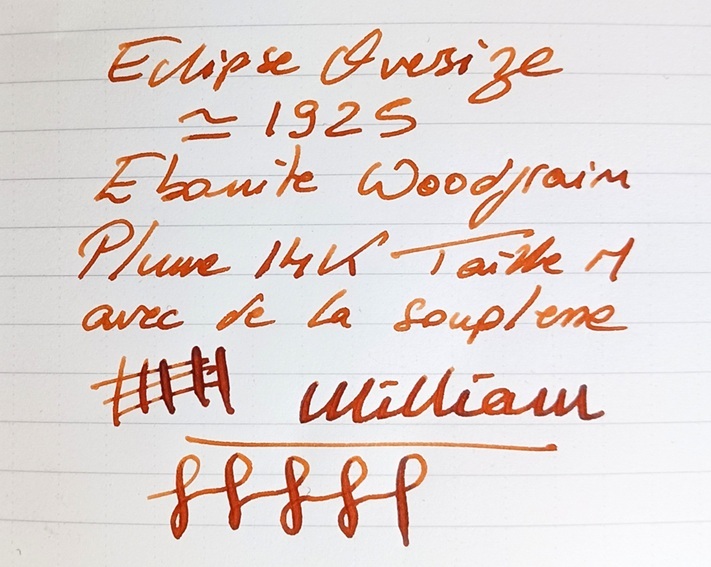 Eclipse Oversize
≃ 1925
Ebonite Woodgrain
Plume 14K Taille M
avec de la souplesse
William